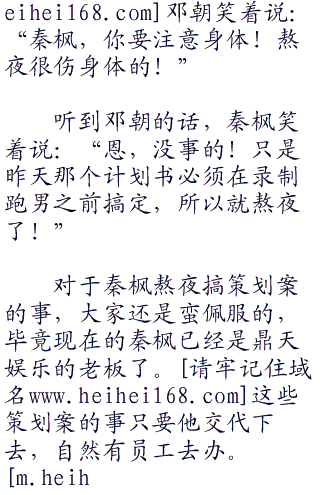 eihei168.com]邓朝笑着说：
“秦枫，你要注意身体！熬
夜很伤身体的！”
听到邓朝的话，秦枫笑
着说：“恩，没事的！只是
昨天那个计划书必须在录制
跑男之前搞定，所以就熬夜
了！”
对于秦枫熬夜搞策划案
的事，大家还是蛮佩服的，
毕竟现在的秦枫已经是鼎天
娱乐的老板了。[请牢记住域
名www.heihei168.com]这些
策划案的事只要他交代下
去，自然有员工去办。
[m.heih